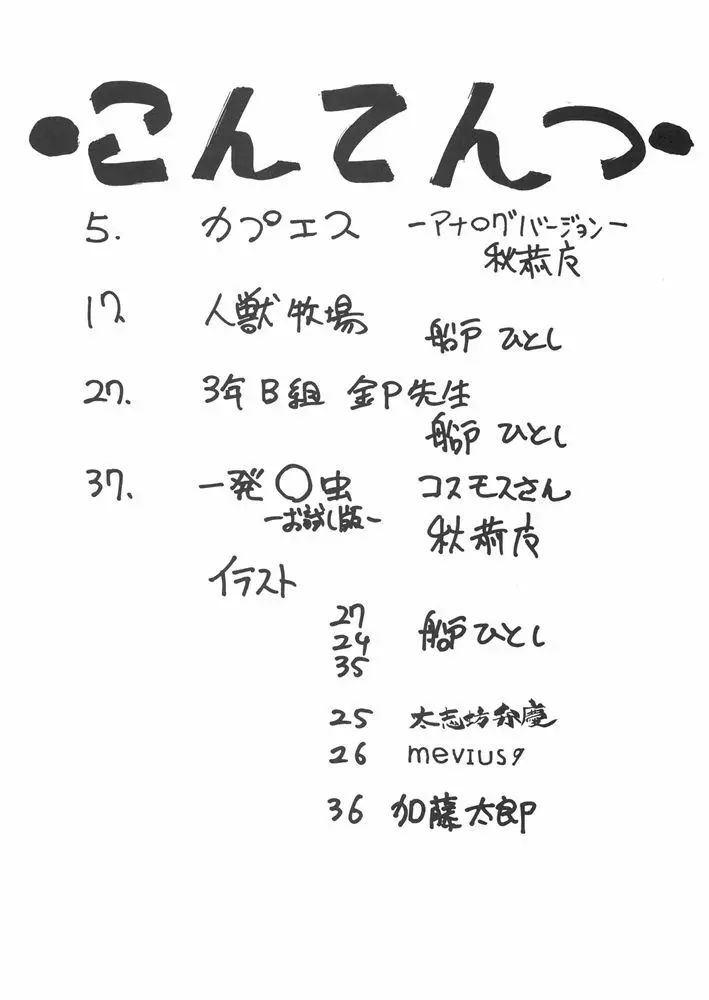 ・こんてんつ・
5. カプエス -アナログバージョン-
秋恭広
17. 人獣牧場
船戸ひとし
27. 3年B組 金P先生
船戸ひとし
37. 一発○虫 コスモスさん
-お試し版-
秋恭広
イラスト
27
24 船戸ひとし
35
25 太志坊弁慶
26 mevius9
36 加藤太郎